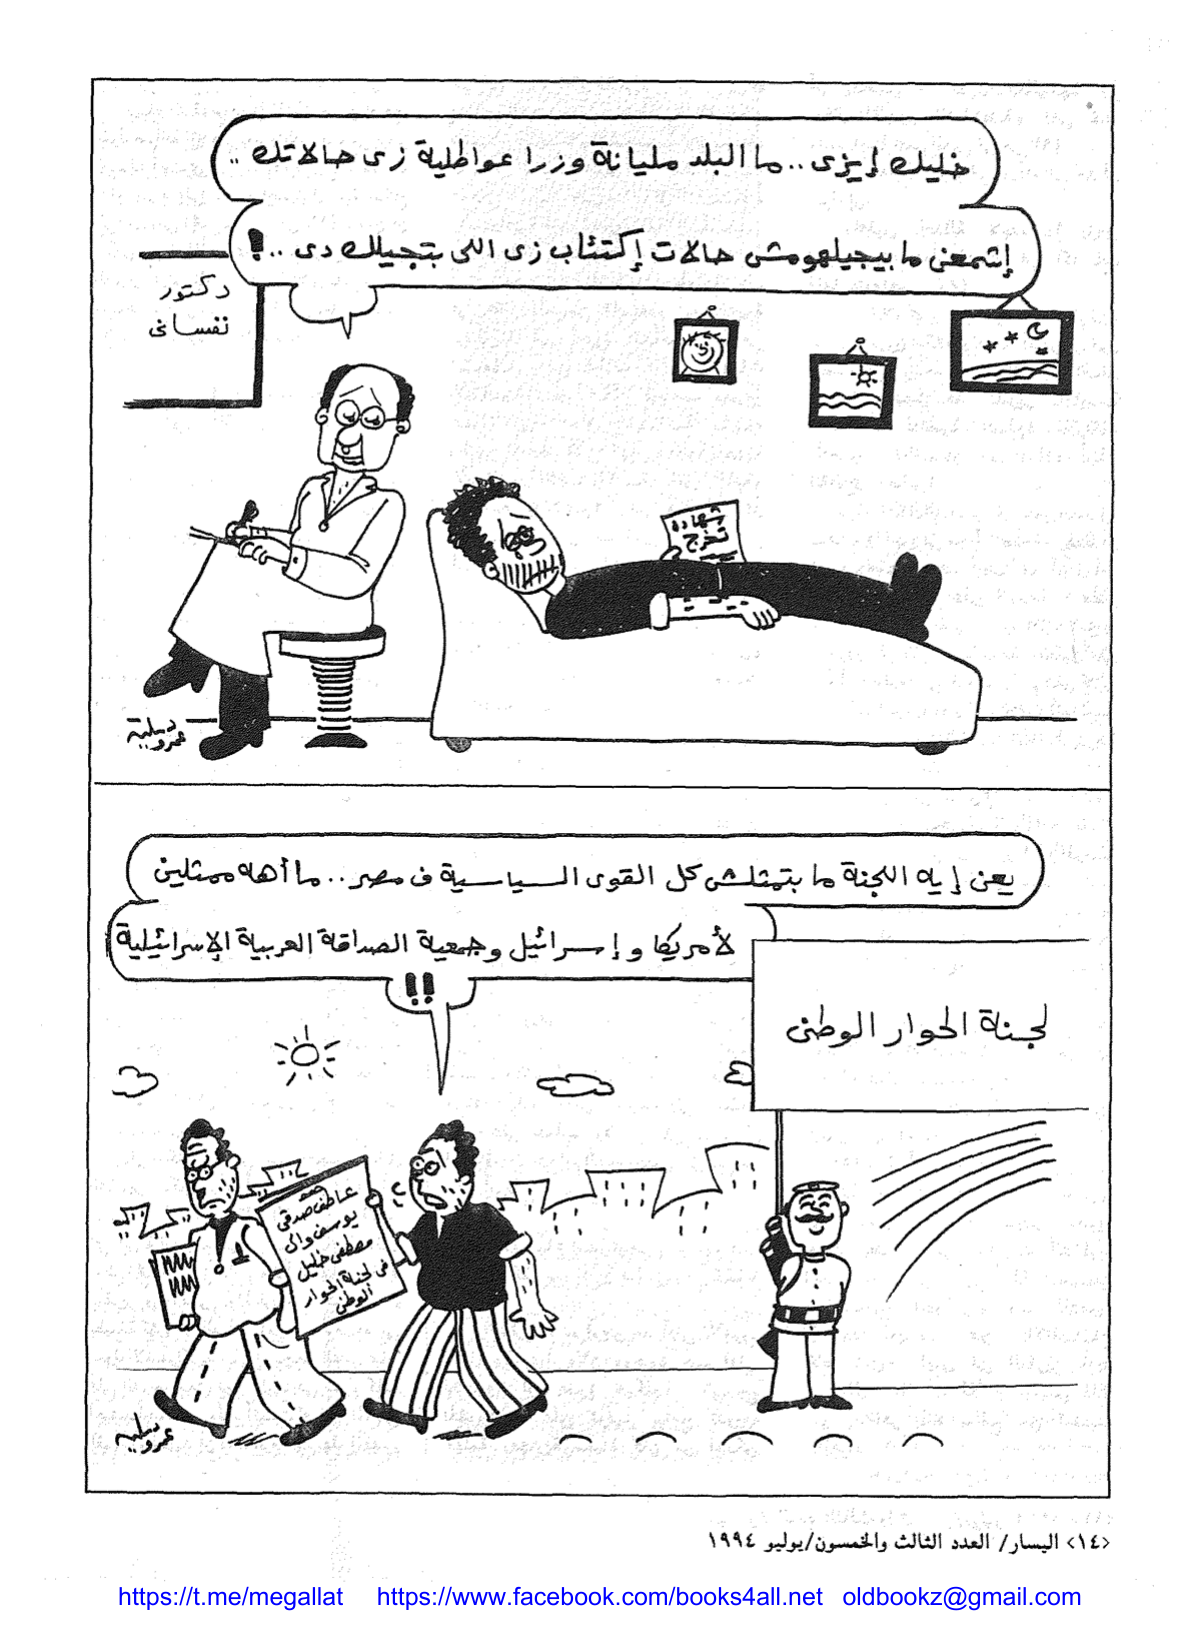 خليك إيزى.. ما البلد مليانة وزرا عواطلية زى حالاتك..
إشمعنى ما بيجيلهومش حالات إكتئاب زى اللى بتجيلك دى..!
دكتور
نفسانى
شهادة
تخرج
عمرو سليم
يعنى إيه اللجنة ما بتمثلش كل القوى السياسية فى مصر.. ما أهه ممثلين
لأمريكا وإسرائيل وجمعية الصداقة العربية الإسرائيلية
!!
لجنة الحوار الوطنى
عاطف صدقى
يوسف والى
مصطفى خليل
فى لجنة الحوار
الوطنى
عمرو سليم
<١٤> اليسار/ العدد الثالث والخمسون/يوليو ١٩٩٤
https://t.me/megallat https://www.facebook.com/books4all.net oldbookz@gmail.com